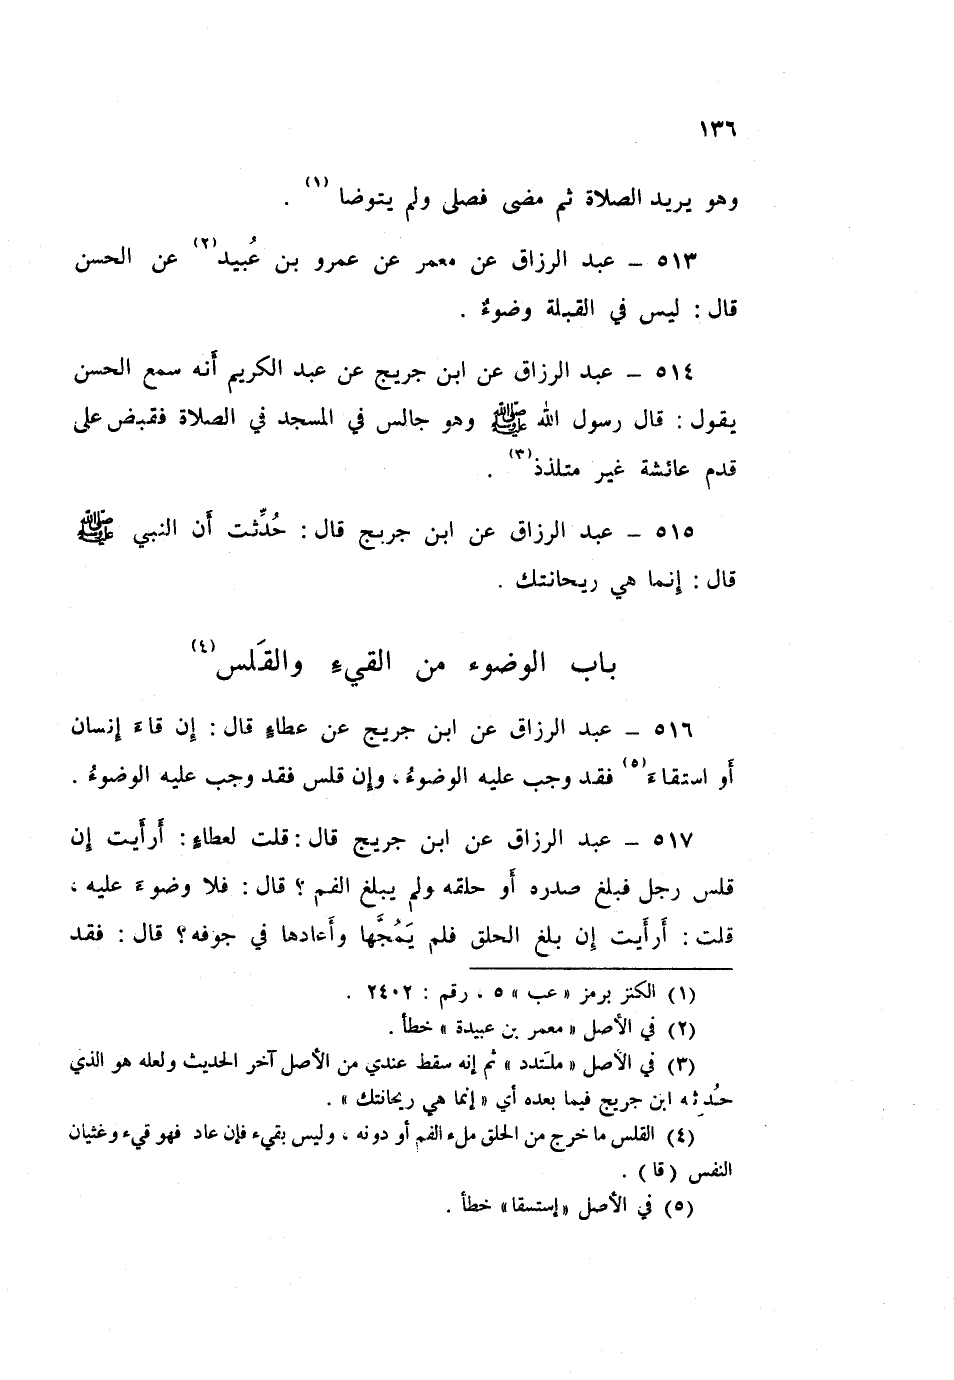 ١٣٦
وهو يريد الصلاة ثم مضى فصلى ولم يتوضا (١) .
٥١٣ – عبد الرزاق عن معمر عن عمرو بن عُبيد(٢) عن الحسن
قال : ليس في القبلة وضوءٌ .
٥١٤ – عبد الرزاق عن ابن جريج عن عبد الكريم أَنه سمع الحسن
يقول : قال رسول الله ﷺ وهو جالس في المسجد في الصلاة فقبض على
قدم عائشة غير متلذذ(٣) .
٥١٥ – عبد الرزاق عن ابن جريج قال : حُدِّثت أَن النبي ﷺ
قال : إِنما هي ريحانتك .
باب الوضوء من القيءِ والقَلس(٤)
٥١٦ – عبد الرزاق عن ابن جريج عن عطاءٍ قال : إِن قاءَ إِنسان
أَو استقاءَ(٥) فقد وجب عليه الوضوءُ ، وإِن قلس فقد وجب عليه الوضوءُ .
٥١٧ – عبد الرزاق عن ابن جريج قال : قلت لعطاءٍ : أَرأَيت إِن
قلس رجل فبلغ صدره أَو حلقه ولم يبلغ الفم ؟ قال : فلا وضوءَ عليه ،
قلت : أَرأَيت إِن بلغ الحلق فلم يَمُجَّها وأَعادها في جوفه؟ قال : فقد
(١) الكنز برمز «عب» ٥ ، رقم : ٢٤٠٢ .
(٢) في الأصل «معمر بن عبيدة» خطأ .
(٣) في الأصل «ملتدد» ثم إنه سقط عندي من الأصل آخر الحديث ولعله هو الذي
حُدِثه ابن جريج فيما بعده أي «إنما هي ريحانتك» .
(٤) القلس ما خرج من الحلق ملء الفم أو دونه ، وليس بقيء فإن عاد فهو قيء وغثيان
النفس (قا) .
(٥) في الأصل «إستسقا» خطأ .